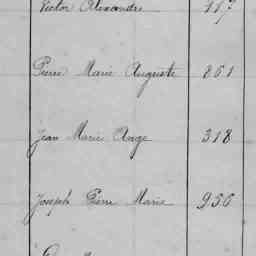 Victor Alexandre 117
Pierre Marie Auguste 261
Jean Marie Ange 318
Joseph Pierre Marie 950